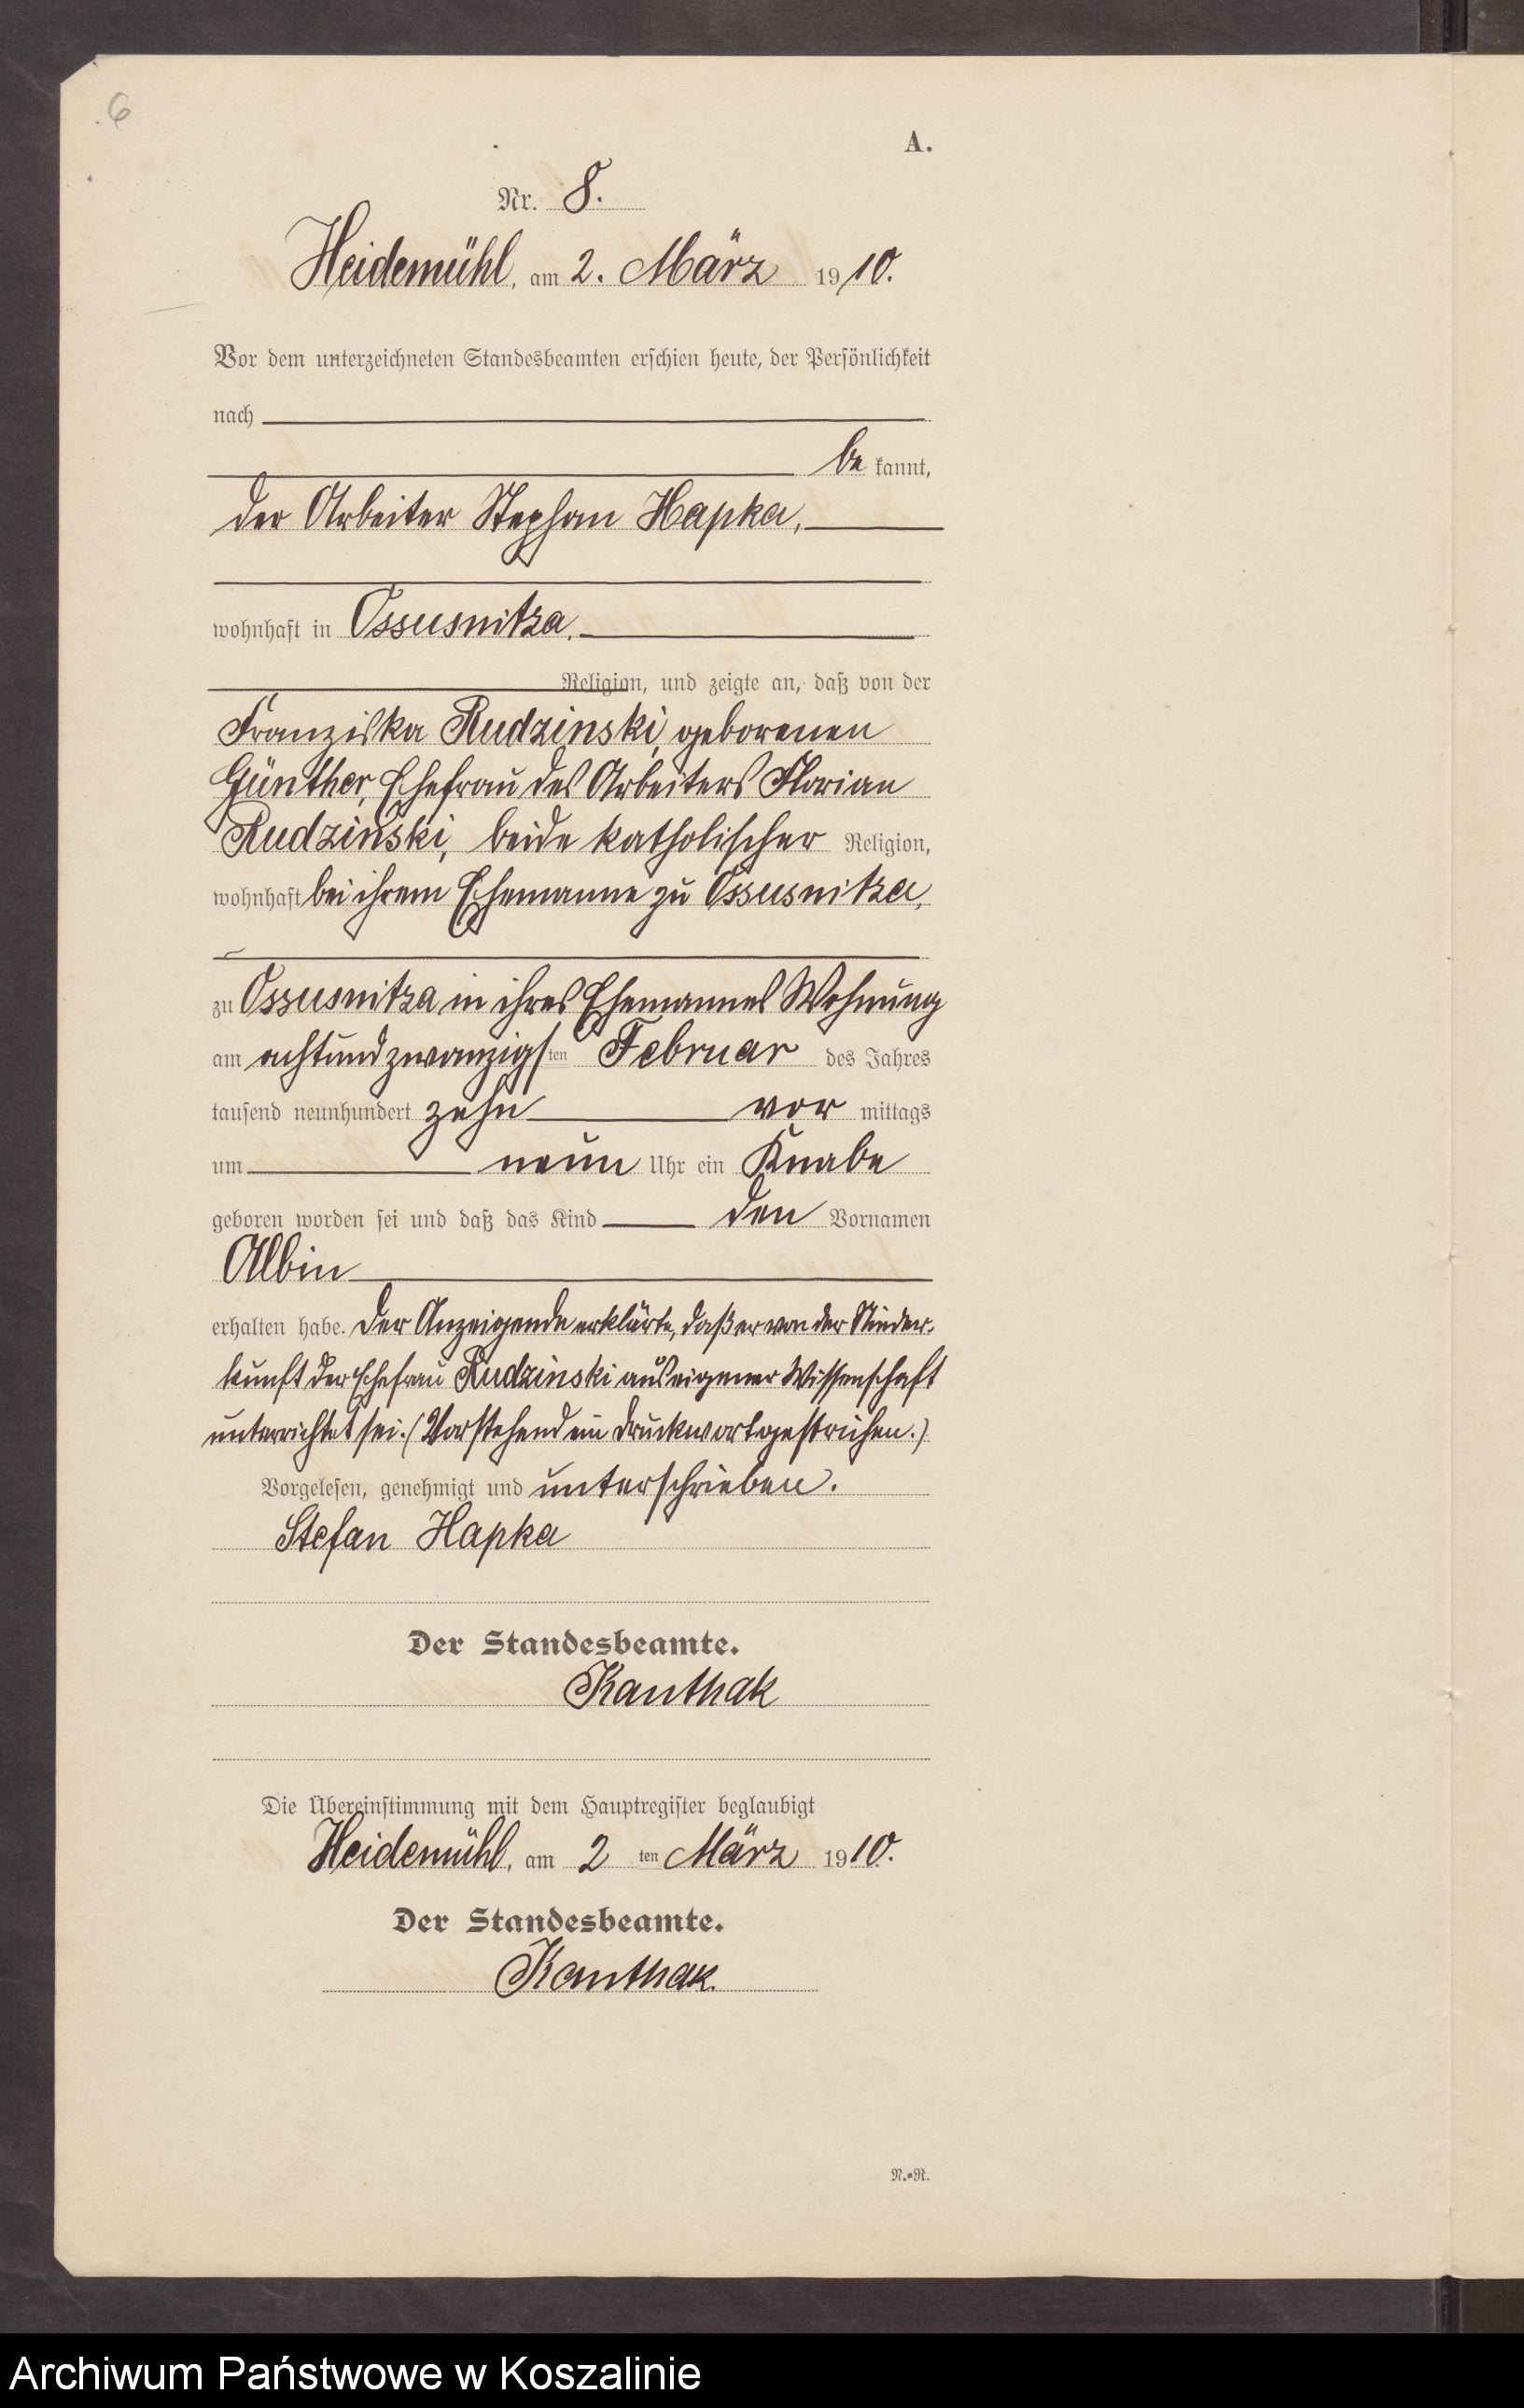 6
A.
Nr. 8.
Heidemühl, am 2. März 1910.
Vor dem unterzeichneten Standesbeamten erschien heute, der Persönlichkeit
nach
be kannt,
der Arbeiter Stephan Hapka,
wohnhaft in Ossusnitza,
Religion, und zeigte an, daß von der
Franziska Rudzinski, geborenen
Günther, Ehefrau des Arbeiters Florian
Rudzinski, beide katholischer Religion,
wohnhaft bei ihrem Ehemanne zu Ossusnitza,
zu Ossusnitza in ihres Ehemannes Wohnung
am achtundzwanzigsten Februar des Jahres
tausend neunhundert zehn vor mittags
um neun Uhr ein Knabe
geboren worden sei und daß das Kind den Vornamen
Albin
erhalten habe. Der Anzeigende erklärte, daß er von der Nieder-
kunft der Ehefrau Rudzinski aus eigener Wissenschaft
unterrichtet sei. (Vorstehend ein Druckwort gestrichen.)
Vorgelesen, genehmigt und unterschrieben.
Stefan Hapka
Der Standesbeamte.
Kanthak
Die Übereinstimmung mit dem Hauptregister beglaubigt
Heidemühl, am 2 ten März 1910.
Der Standesbeamte.
Kanthak.
N.-R.
Archiwum Państwowe w Koszalinie